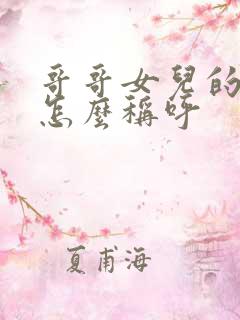 哥哥女兒的
怎麼稱呼
夏甫海